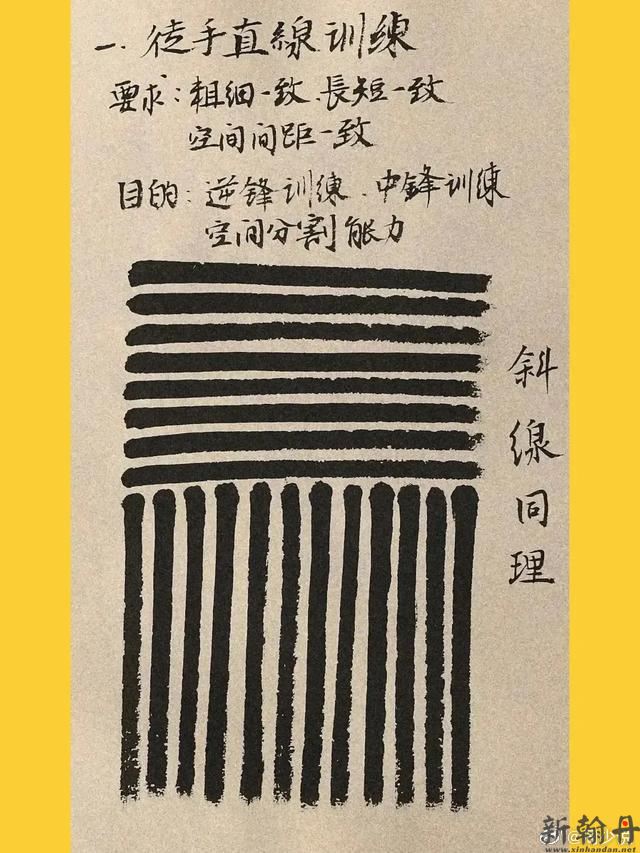 一、徒手直線训練
要求：粗细一致、長短一致
空间间距一致
目的：逆锋训練、中鋒训練
空间分割能力
斜線同理
新翰丹
www.xinhandan.net